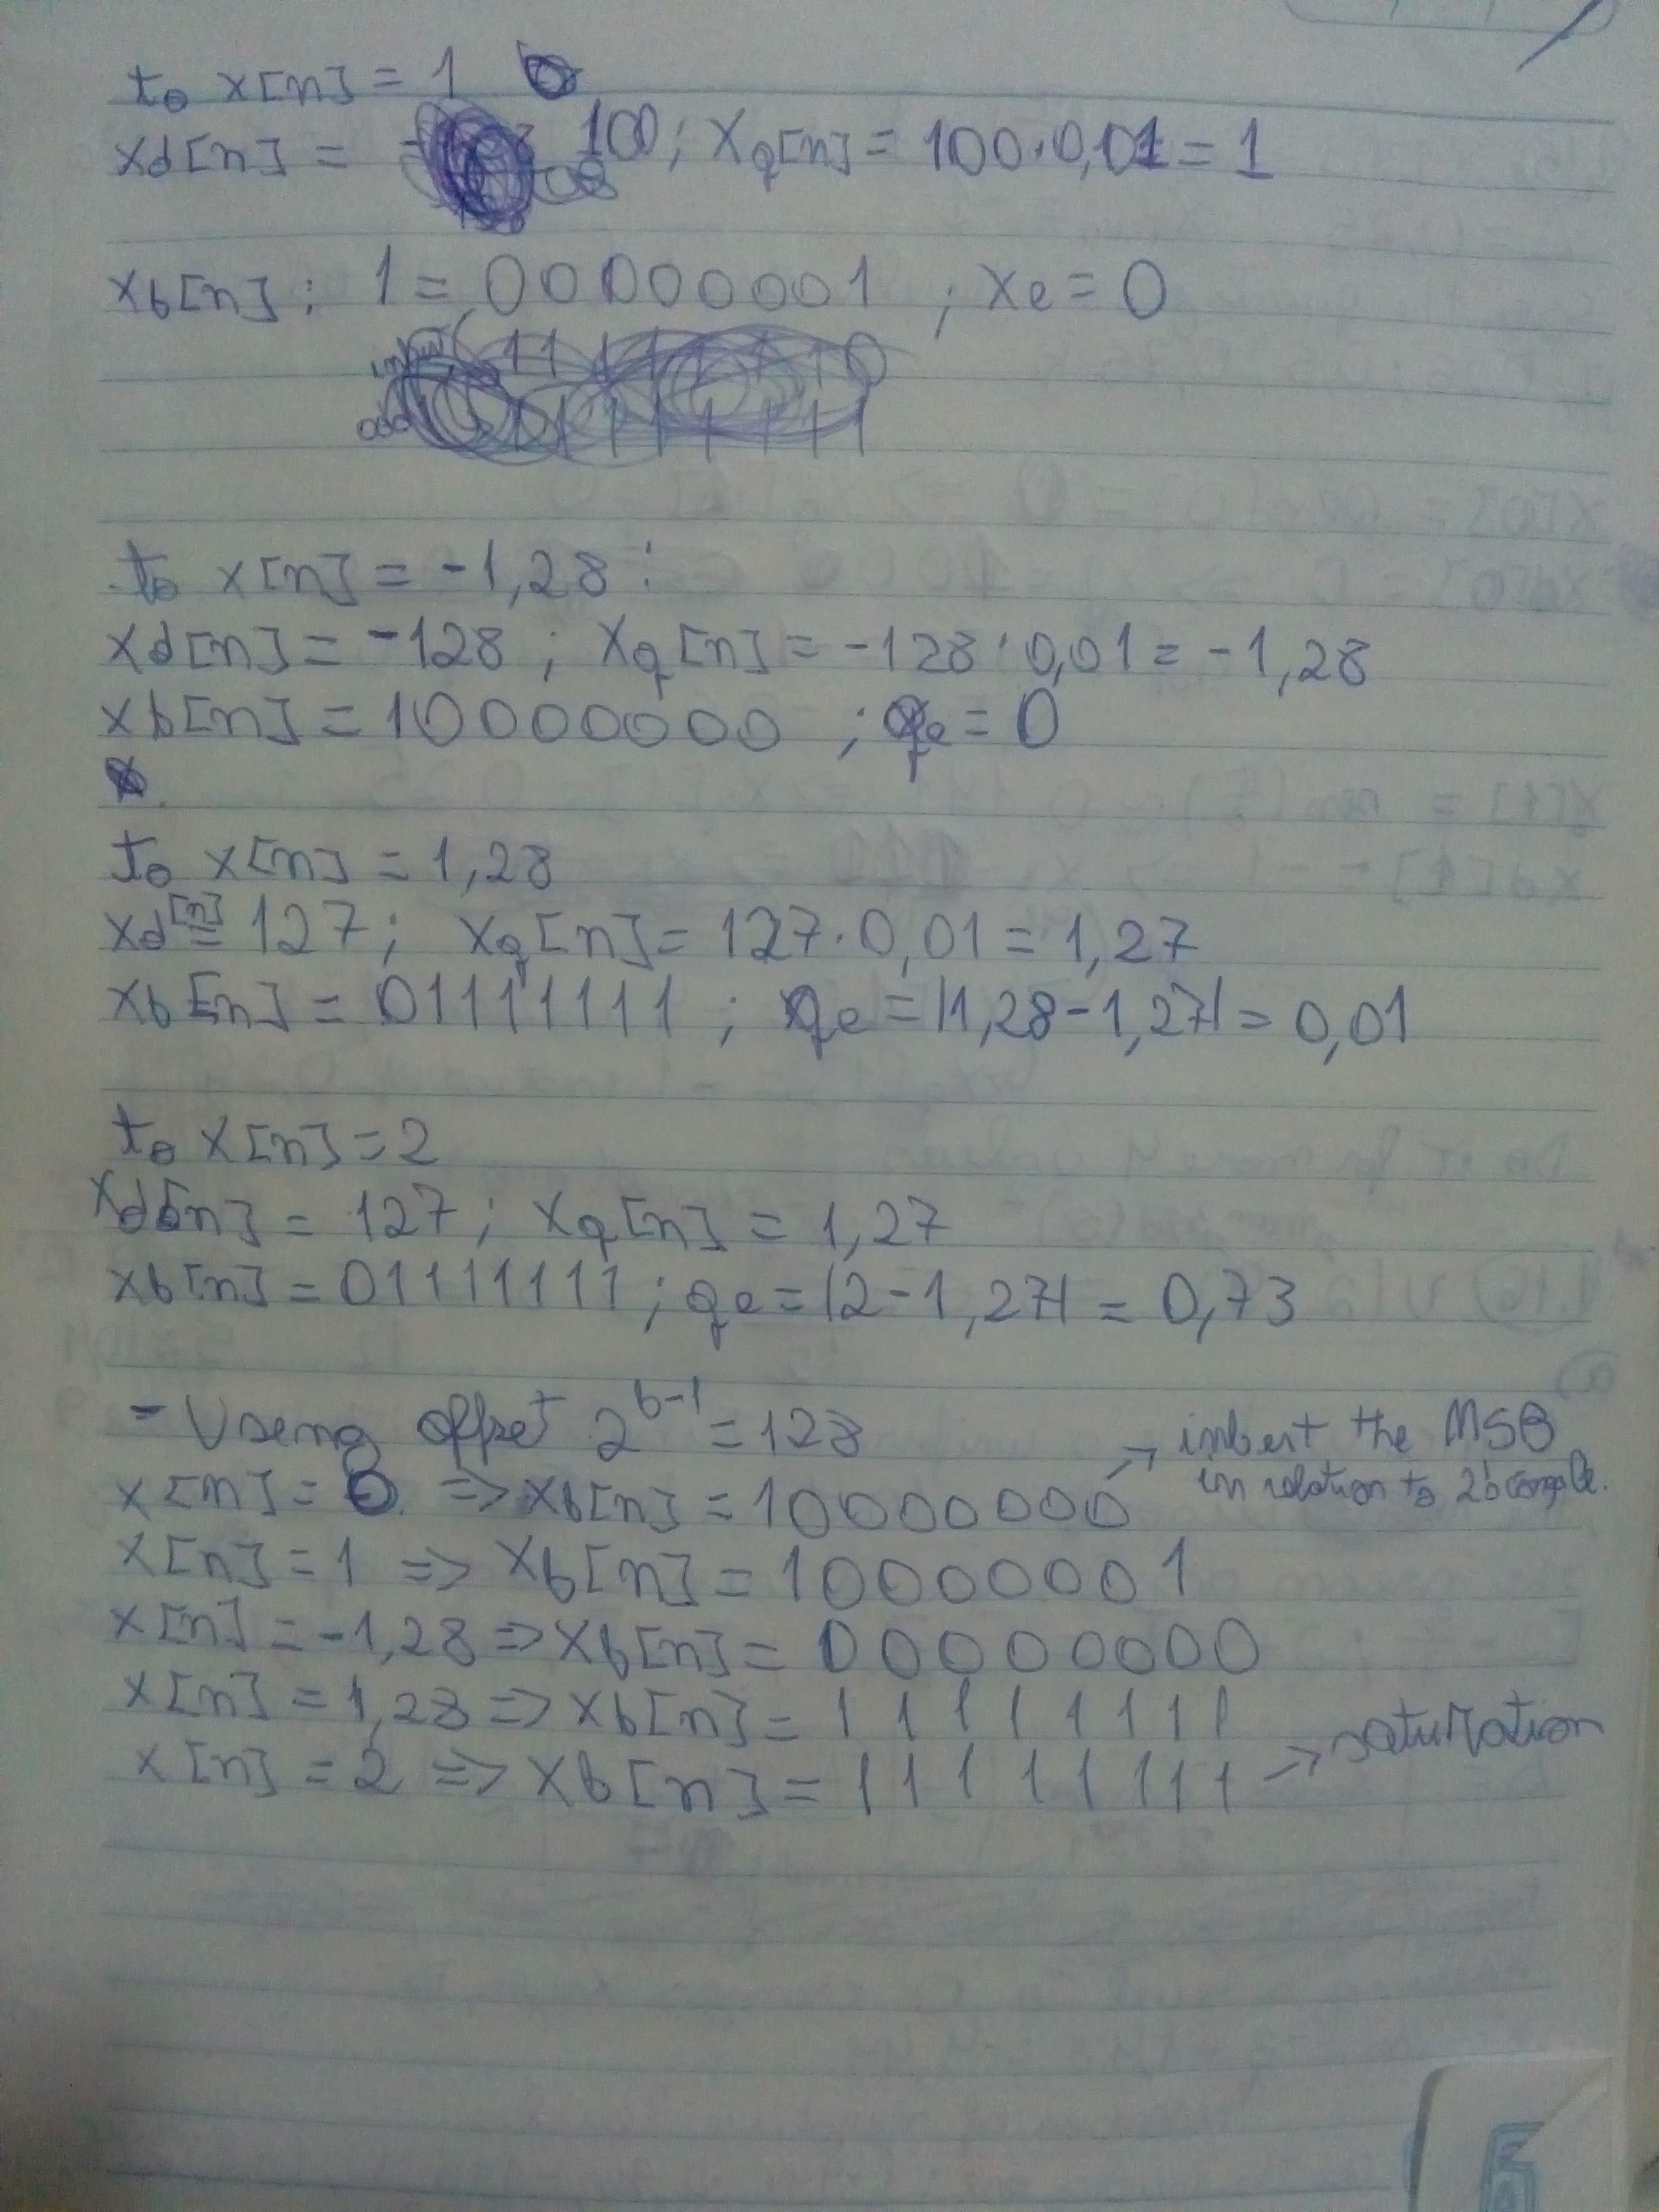 to x[n] = 1
xd[n] = 100; Xq[n] = 100.0,01 = 1
xb[n]: 1 = 00000001 ; xe = 0
to x[n] = -1,28:
xd[n] = -128 ; xq[n] = -128.0,01 = -1,28
xb[n] = 10000000 ; qe = 0
to x[n] = 1,28
xd[n] = 127; xq[n] = 127.0,01 = 1,27
xb[n] = 01111111 ; qe = |1,28-1,27| = 0,01
to x[n] = 2
xd[n] = 127; xq[n] = 1,27
xb[n] = 01111111; qe = |2-1,27| = 0,73
- Using offset 2^b-1 = 128
→ inbert the MSB
in relation to 2's comple.
x[n] = 0 => xb[n] = 10000000
x[n] = 1 => xb[n] = 10000001
x[n] = -1,28 => xb[n] = 00000000
x[n] = 1,28 => xb[n] = 11111111
x[n] = 2 => xb[n] = 11111111 → saturation